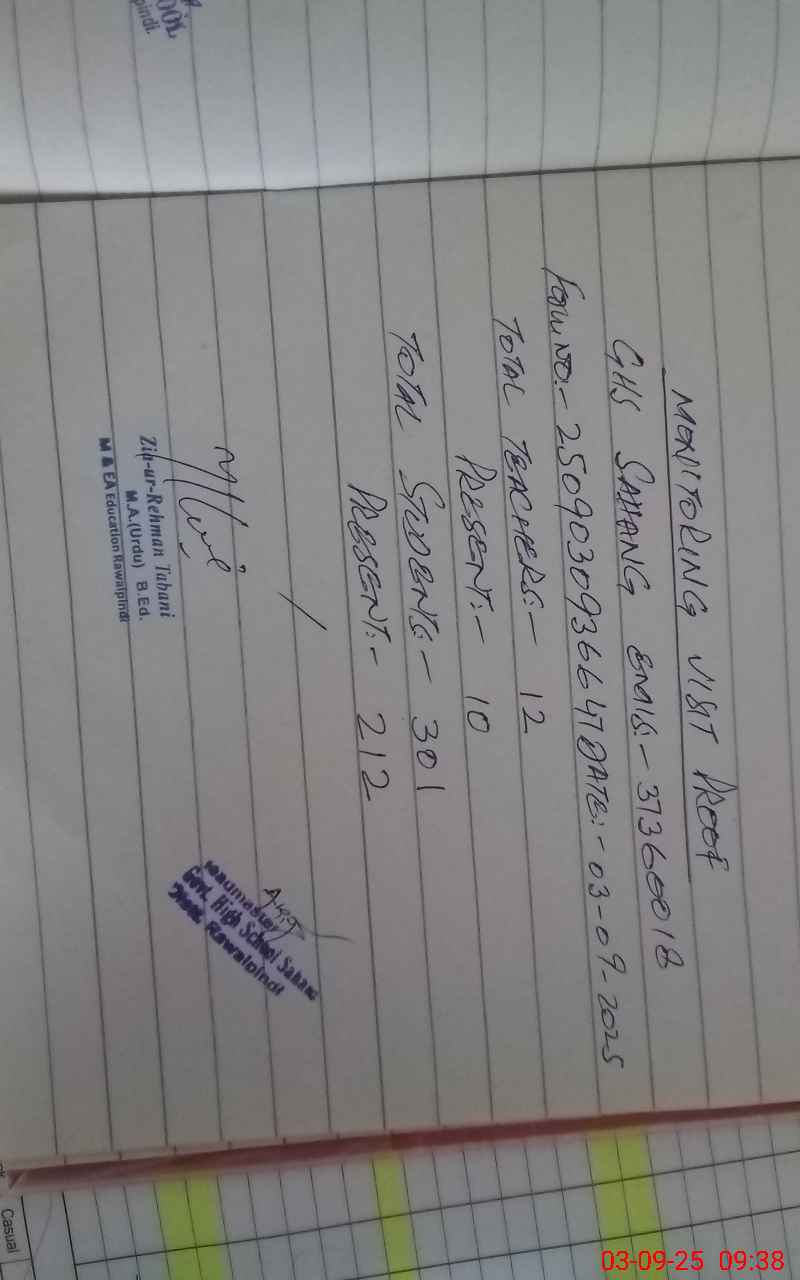 MONITORING VISIT PROOF
GHS SAHANG EMIS:- 37360018
FORM NO.:- 2509030936647 DATE:- 03-09-2025
TOTAL TEACHERS:- 12
PRESENT:- 10
TOTAL STUDENTS:- 301
PRESENT:- 212
Zia-ur-Rehman Tahani
M.A.(Urdu) B.Ed.
M & EA Education Rawalpindi
Headmaster
Govt. High School Sahang
Distt. Rawalpindi
pindi.
Casual
03-09-25 09:38